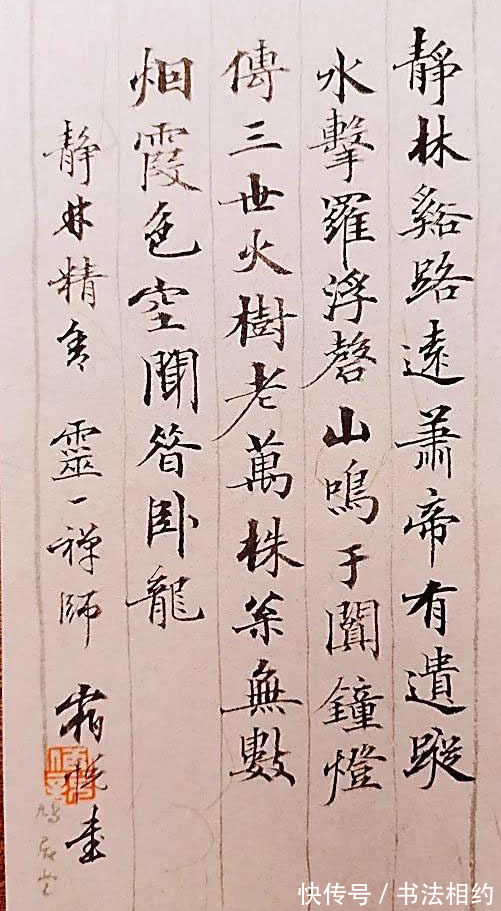 靜林谿路遠蕭帝有遺蹤
水擊羅浮磬山鳴于闐鐘燈
傳三世火樹老萬株枀無數
烟霞色空聞昔卧龍
靜林精舍 靈一禅師 書
快传号 / 书法相约